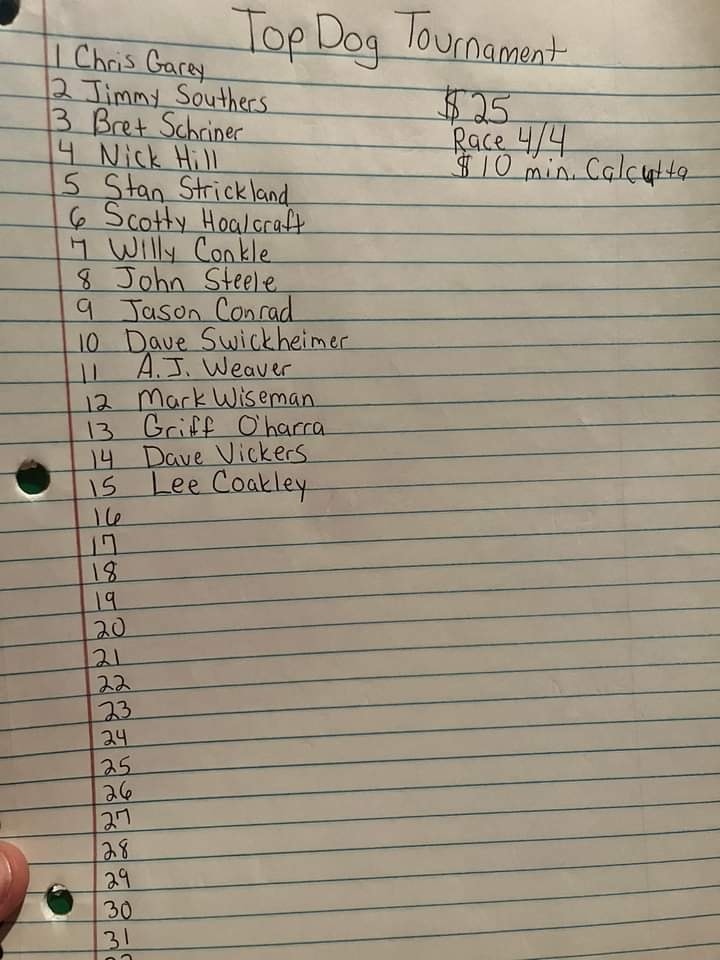 Top Dog Tournament
1 Chris Garey
2 Jimmy Southers
3 Bret Schriner
4 Nick Hill
5 Stan Strickland
6 Scotty Hoalcraft
7 Willy Conkle
8 John Steele
9 Jason Conrad
10 Dave Swickheimer
11 A.J. Weaver
12 Mark Wiseman
13 Griff O'harra
14 Dave Vickers
15 Lee Coakley
16
17
18
19
20
21
22
23
24
25
26
27
28
29
30
31
$25
Race 4/4
$10 min. Calcutta